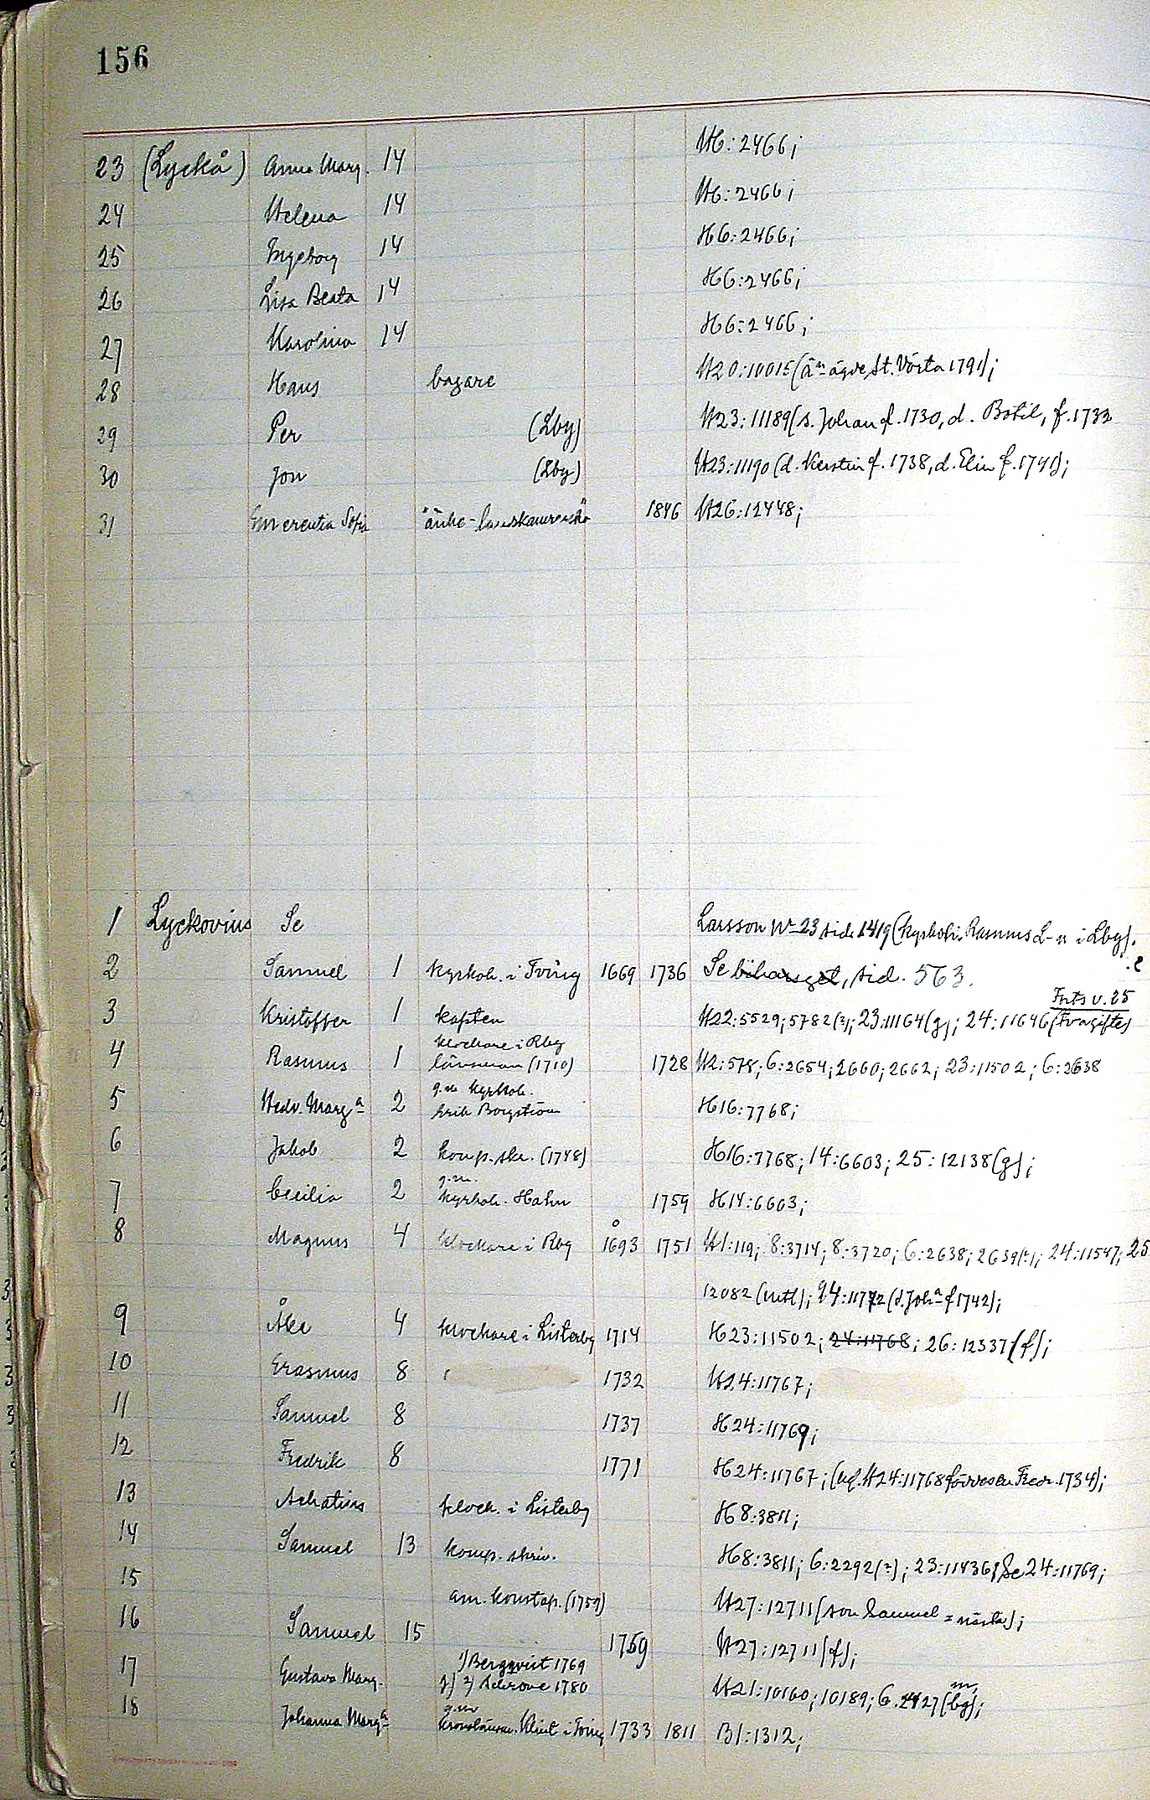 156
23 (Lyckå) Anna Marg. 14 H6:2466;
24 Helena 14 H6:2466;
25 Ingeborg 14 H6:2466;
26 Lisa Beata 14 H6:2466;
27 Karolina 14 H6:2466;
28 Hans bagare H20:10015 (ägde St. Vörta 1791);
29 Per (Lby) H23:11189 (s. Johan f. 1730, d. Botil, f. 1733
30 Jon (Lby) H23:11190 (d. Kerstin f. 1738, d. Elin f. 1741);
31 Emerentia Sofia 1846 H26:12448;
1 Lyckovius Se Larsson Nr 23 sid. 1419 (kyrkoh. Rasmus L-s i Lby).
2 Samuel 1 kyrkoh. i Tving 1669 1736 Se bihanget, sid. 563.
Forts v. 25
3 Kristoffer 1 kapten H22:5529; 5782(?); 23:11164(g); 24:11646
4 Rasmus 1 klockare i Rby länsman (1710) 1728 H2:578; 6:2654; 2660; 2662; 23:11502; 6:2638
5 Hedv. Marg:a 2 g.m. kyrkoh. Erik Borgström H16:7768;
6 Jakob 2 komp.skr. (1748) H16:7768; 14:6603; 25:12138(g);
7 Cecilia 2 g.m. kyrkoh. Hahn 1759 H14:6603;
8 Magnus 4 klockare i Rby 1693 1751 H1:119; 8:3714; 8:3720; 6:2638; 2639(?); 24:11547; 25
12082; 24:11772 (d. Joh:a f 1742);
9 Åke 4 klockare i Listerby 1714 H23:11502; 24:11768; 26:12337(f);
10 Erasmus 8 1732 H24:11767;
11 Samuel 8 1737 H24:11769;
12 Fredrik 8 1771 H24:11767; (Fredr. 1734);
13 Achatius klock. i Listerby H8:3811;
14 Samuel 13 komp. skriv. H8:3811; 6:2292(?); 23:11436; Se 24:11769;
15 am. konstap. (1759) H27:12711 (son Samuel = nästa);
16 Samuel 15 1759 H27:12711(f);
17 Gustava Marg. 1) Bergqvist 1769 2) 1780 H21:10160; 10189; 6.
18 Johanna Marg:a g.m kronolänsm. Klint i Tving 1733 1811 B1:1312;